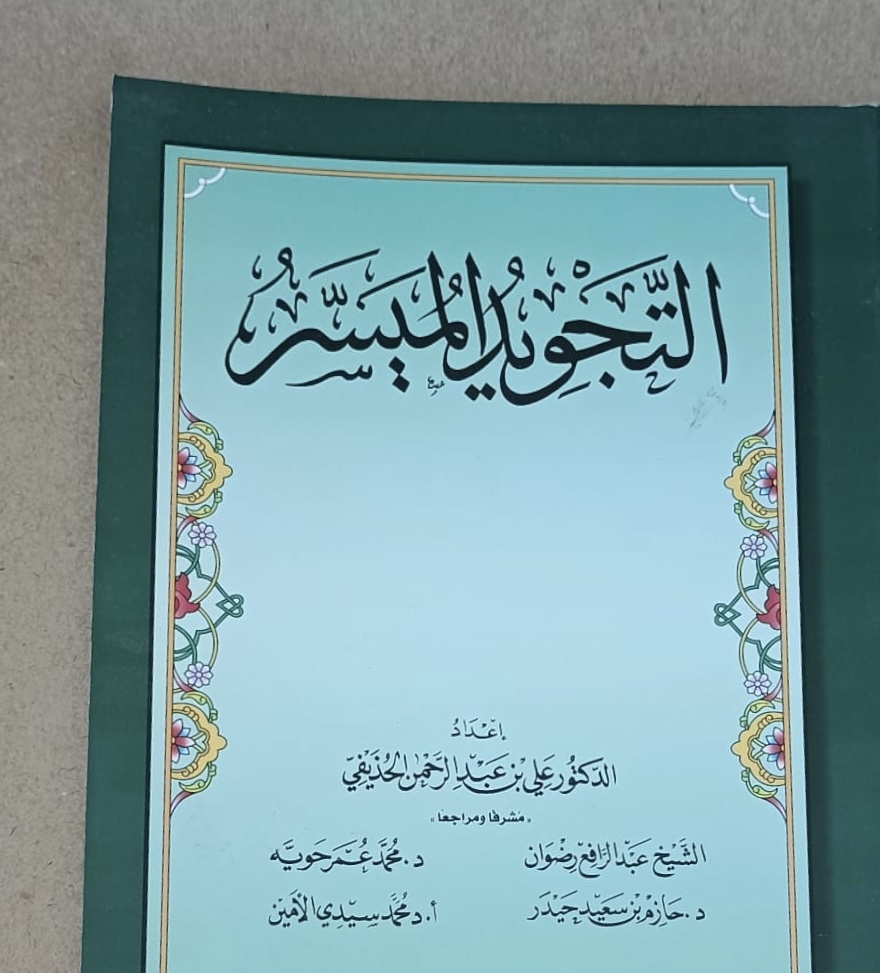 التَّجْوِيدُ المُيَسَّرُ
إعْدَادُ
الدّكتُور عَلي بْن عَبْدِ الرَّحْمٰن الحُذَيْفِيّ
«مُشرفًا ومراجعًا»
الشَّيْخ عَبْد الرَّافِع رِضْوَان د. مُحَمَّد عُمَر حَويَّه
د. حَازِم بْن سَعِيد حَيْدَر أ. د مُحَمَّد سِيدِي الأَمِين